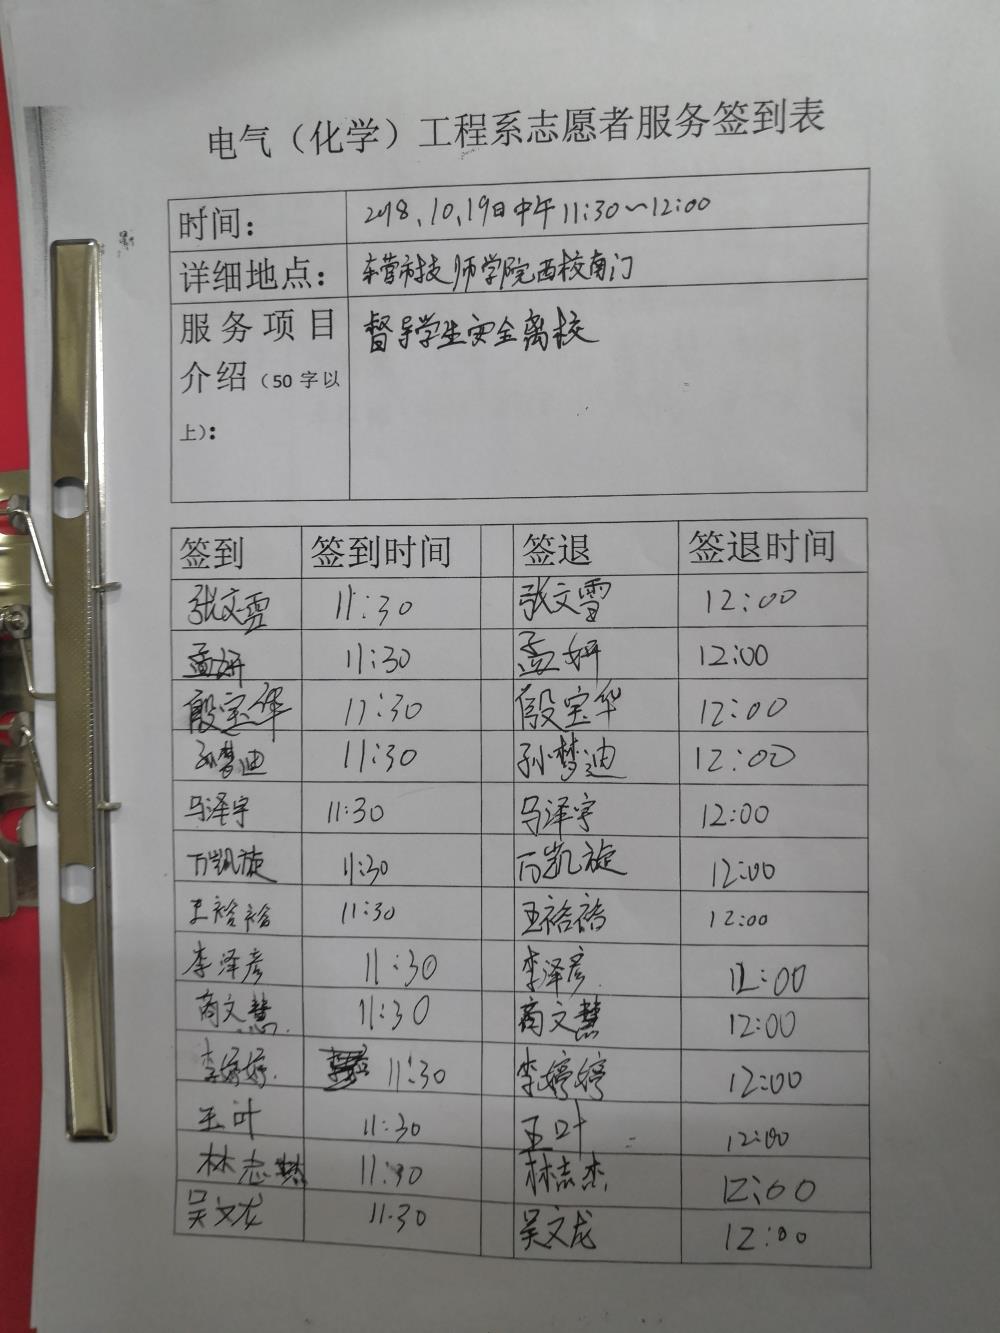 电气（化学）工程系志愿者服务签到表
时间： 2018.10.19日中午11:30~12:00
详细地点： 东营科技师学院西校南门
服务项目 督导学生安全离校
介绍（50字以
上）：
签到 签到时间 签退 签退时间
张文雪 11:30 张文雪 12:00
孟妍 11:30 孟妍 12:00
殷宝华 11:30 殷宝华 12:00
孙梦迪 11:30 孙梦迪 12:00
马泽宇 11:30 马泽宇 12:00
万凯旋 11:30 万凯旋 12:00
王裕裕 11:30 王裕裕 12:00
李泽彦 11:30 李泽彦 12:00
商文慧 11:30 商文慧 12:00
李婷婷 11:30 李婷婷 12:00
王叶 11:30 王叶 12:00
林志杰 11:30 林志杰 12:00
吴文龙 11:30 吴文龙 12:00